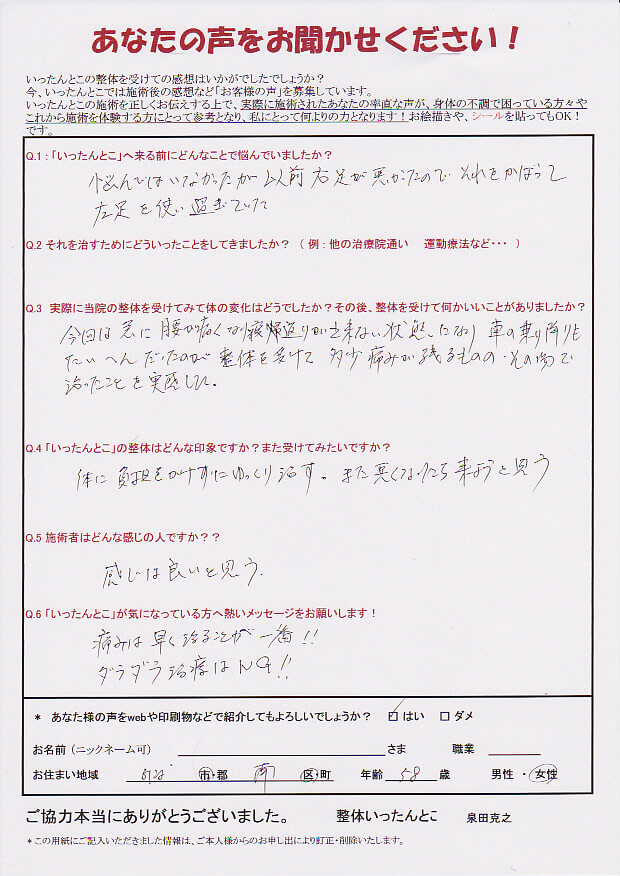 あなたの声をお聞かせください！
いったんとこの整体を受けての感想はいかがでしたでしょうか？
今、いったんとこでは施術後の感想など「お客様の声」を募集しています。
いったんとこの施術を正しくお伝えする上で、実際に施術されたあなたの率直な声が、身体の不調で困っている方々や
これから施術を体験する方にとって参考となり、私にとって何よりの力となります！お絵描きや、シールを貼ってもOK！
です。
Q.1：「いったんとこ」へ来る前にどんなことで悩んでいましたか？
悩んではいなかったが 以前右足が悪かったので それをかばって
左足を使い過ぎていた
Q.2 それを治すためにどういったことをしてきましたか？（ 例：他の治療院通い 運動療法など・・・ ）
Q.3 実際に当院の整体を受けてみて体の変化はどうでしたか？その後、整体を受けて何かいいことがありましたか？
今回は急に腰が痛くなり寝帰返りが出来ない状態になり 車の乗り降りも
たいへんだったのが 整体を受けて 多少痛みが残るものの その場で
治ったことを実感した。
Q.4 「いったんとこ」の整体はどんな印象ですか？また受けてみたいですか？
体に負担をかけずにゆっくり治す。また悪くなったら来ようと思う
Q.5 施術者はどんな感じの人ですか？？
感じは良いと思う。
Q.6 「いったんとこ」が気になっている方へ熱いメッセージをお願いします！
痛みは早く治ることが一番!!
ダラダラ治療はNG!!
＊ あなた様の声をwebや印刷物などで紹介してもよろしいでしょうか？ ☑ はい □ ダメ
お名前（ニックネーム可） さま 職業
お住まい地域 市・郡 南 区・町 年齢 58 歳 男性 ・ 女性
ご協力本当にありがとうございました。 整体いったんとこ 泉田克之
＊この用紙にご記入いただきました情報は、ご本人様からのお申し出により訂正・削除いたします。